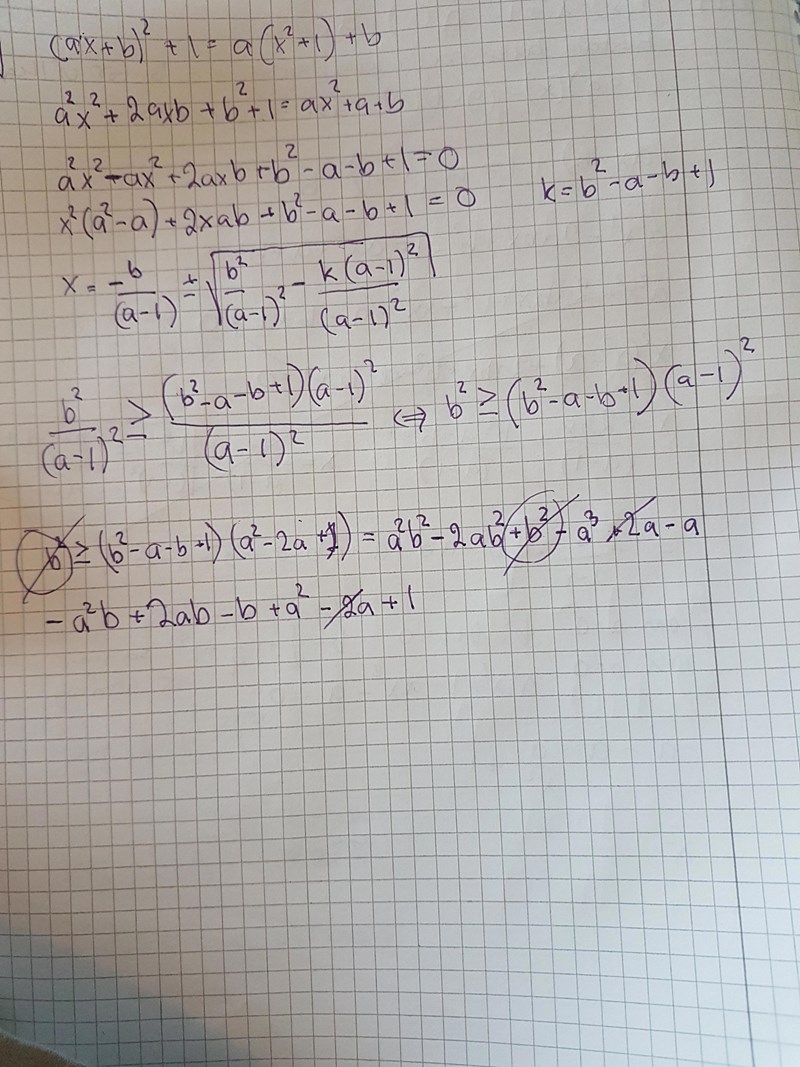 (ax+b)² + 1 = a(x²+1) + b
a²x² + 2axb + b² + 1 = ax² + a + b
a²x² - ax² + 2axb + b² - a - b + 1 = 0
x²(a² - a) + 2xab + b² - a - b + 1 = 0 k = b² - a - b + 1
x = -b/(a-1) ± √(b²/(a-1)² - k(a-1)²/(a-1)²)
b²/(a-1)² ≥ (b² - a - b + 1)(a-1)²/(a-1)² ⇔ b² ≥ (b² - a - b + 1)(a-1)²
b² ≥ (b² - a - b + 1)(a² - 2a + 1) = a²b² - 2ab² + b² - a³ + 2a - a
- a²b + 2ab - b + a² - 2a + 1